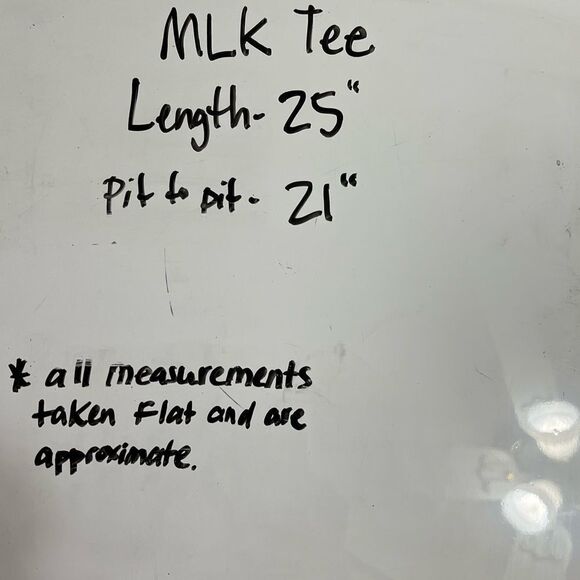 MLK Tee
Length- 25"
Pit to pit- 21"
* all measurements
taken flat and are
approximate.